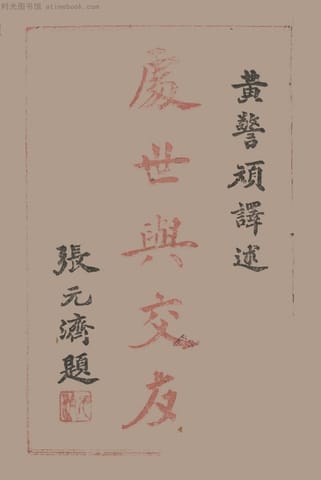 时光图书馆 - atimebook.com
黃警頑譯述
處世與交友
張元濟題